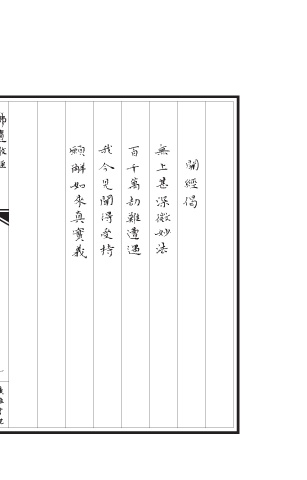 開經偈
無上甚深微妙法
百千萬劫難遭遇
我今見聞得受持
願解如來真實義